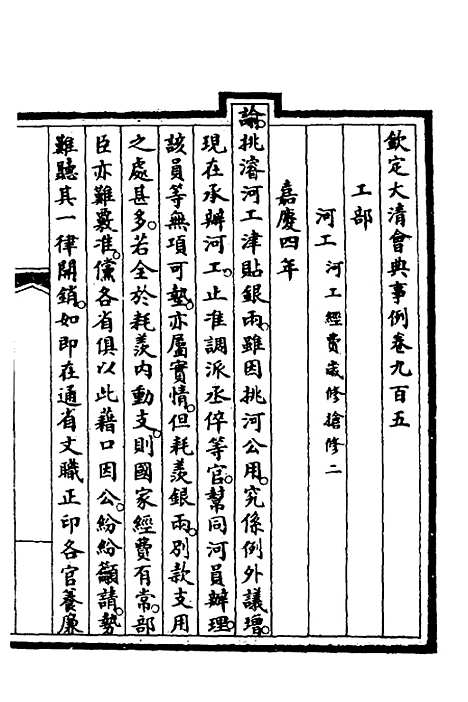 欽定大清會典事例卷九百五
工部
河工 河工經費歲修搶修二
嘉慶四年
諭。挑濬河工津貼銀兩。雖因挑河公用。究係例外議增。
現在承辦河工。止准調派丞倅等官。幫同河員辦理。
該員等無項可墊。亦屬實情。但耗羨銀兩。別款支用
之處甚多。若全於耗羨內動支。則國家經費有常。部
臣亦難覈准。儻各省俱以此藉口因公。紛紛籲請。勢
難聽其一律開銷。如即在通省文職正印各官養廉